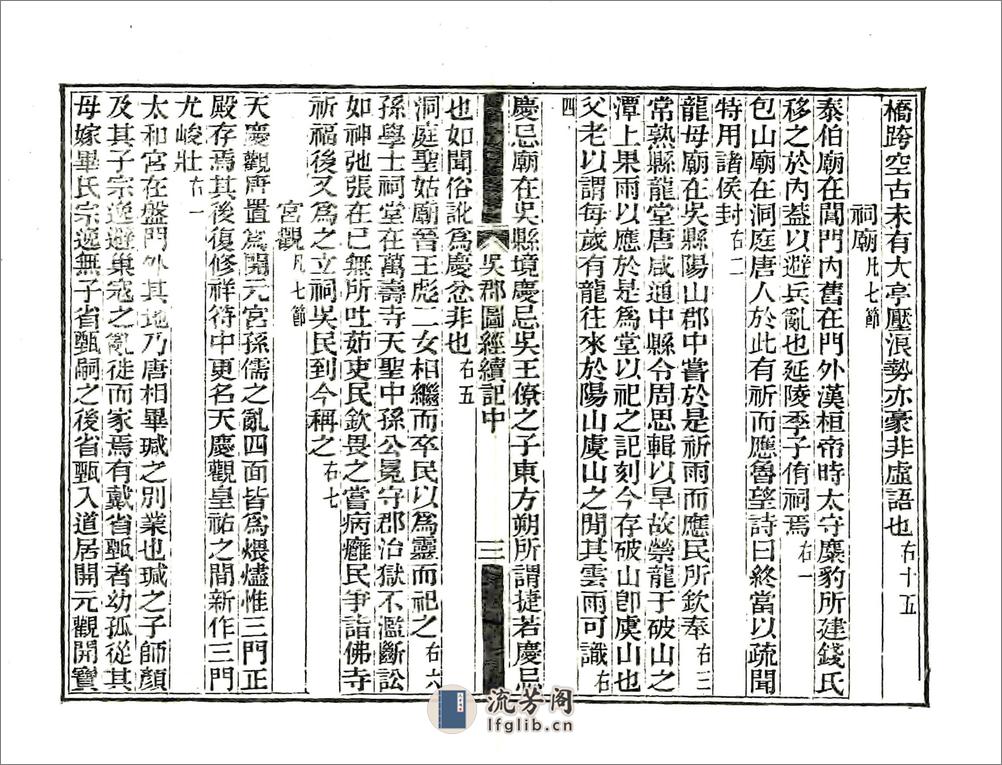 橋跨空古未有大亭壓浪勢亦豪非虛語也右十五
祠廟凡七節
泰伯廟在閶門內舊在門外漢桓帝時太守麋豹所建錢氏
移之於內葢以避兵亂也延陵季子侑祠焉右一
包山廟在洞庭唐人於此有祈而應魯望詩曰終當以疏聞
特用諸侯封右二
龍母廟在吳縣陽山郡中嘗於是祈雨而應民所欽奉右三
常熟縣龍堂唐咸通中縣令周思輯以旱故禜龍于破山之
潭上果雨以應於是為堂以祀之記刻今存破山卽虞山也
父老以謂每歲有龍往來於陽山虞山之閒其雲雨可識右
四
慶忌廟在吳縣境慶忌吳王僚之子東方朔所謂捷若慶忌
也如聞俗訛為慶忿非也右五
洞庭聖姑廟晉王彪二女相繼而卒民以為靈而祀之右六
孫學士祠堂在萬壽寺天聖中孫公冕守郡治獄不濫斷訟
如神弛張在已無所吐茹吏民欽畏之嘗病癰民爭詣佛寺
祈福後又為之立祠吳民到今稱之右七
宮觀凡七節
天慶觀唐置為開元宮孫儒之亂四面皆為煨燼惟三門正
殿存焉其後復修祥符中更名天慶觀皇祐之間新作三門
尤峻壯右一
太和宮在盤門外其地乃唐相畢瑊之別業也瑊之子師顏
及其子宗逸避巢寇之亂徙而家焉有戴省甄者幼孤從其
母嫁畢氏宗逸無子省甄嗣之後省甄入道居開元觀開寶
吳郡圖經續記中
三
流芳阁
lfglib.cn